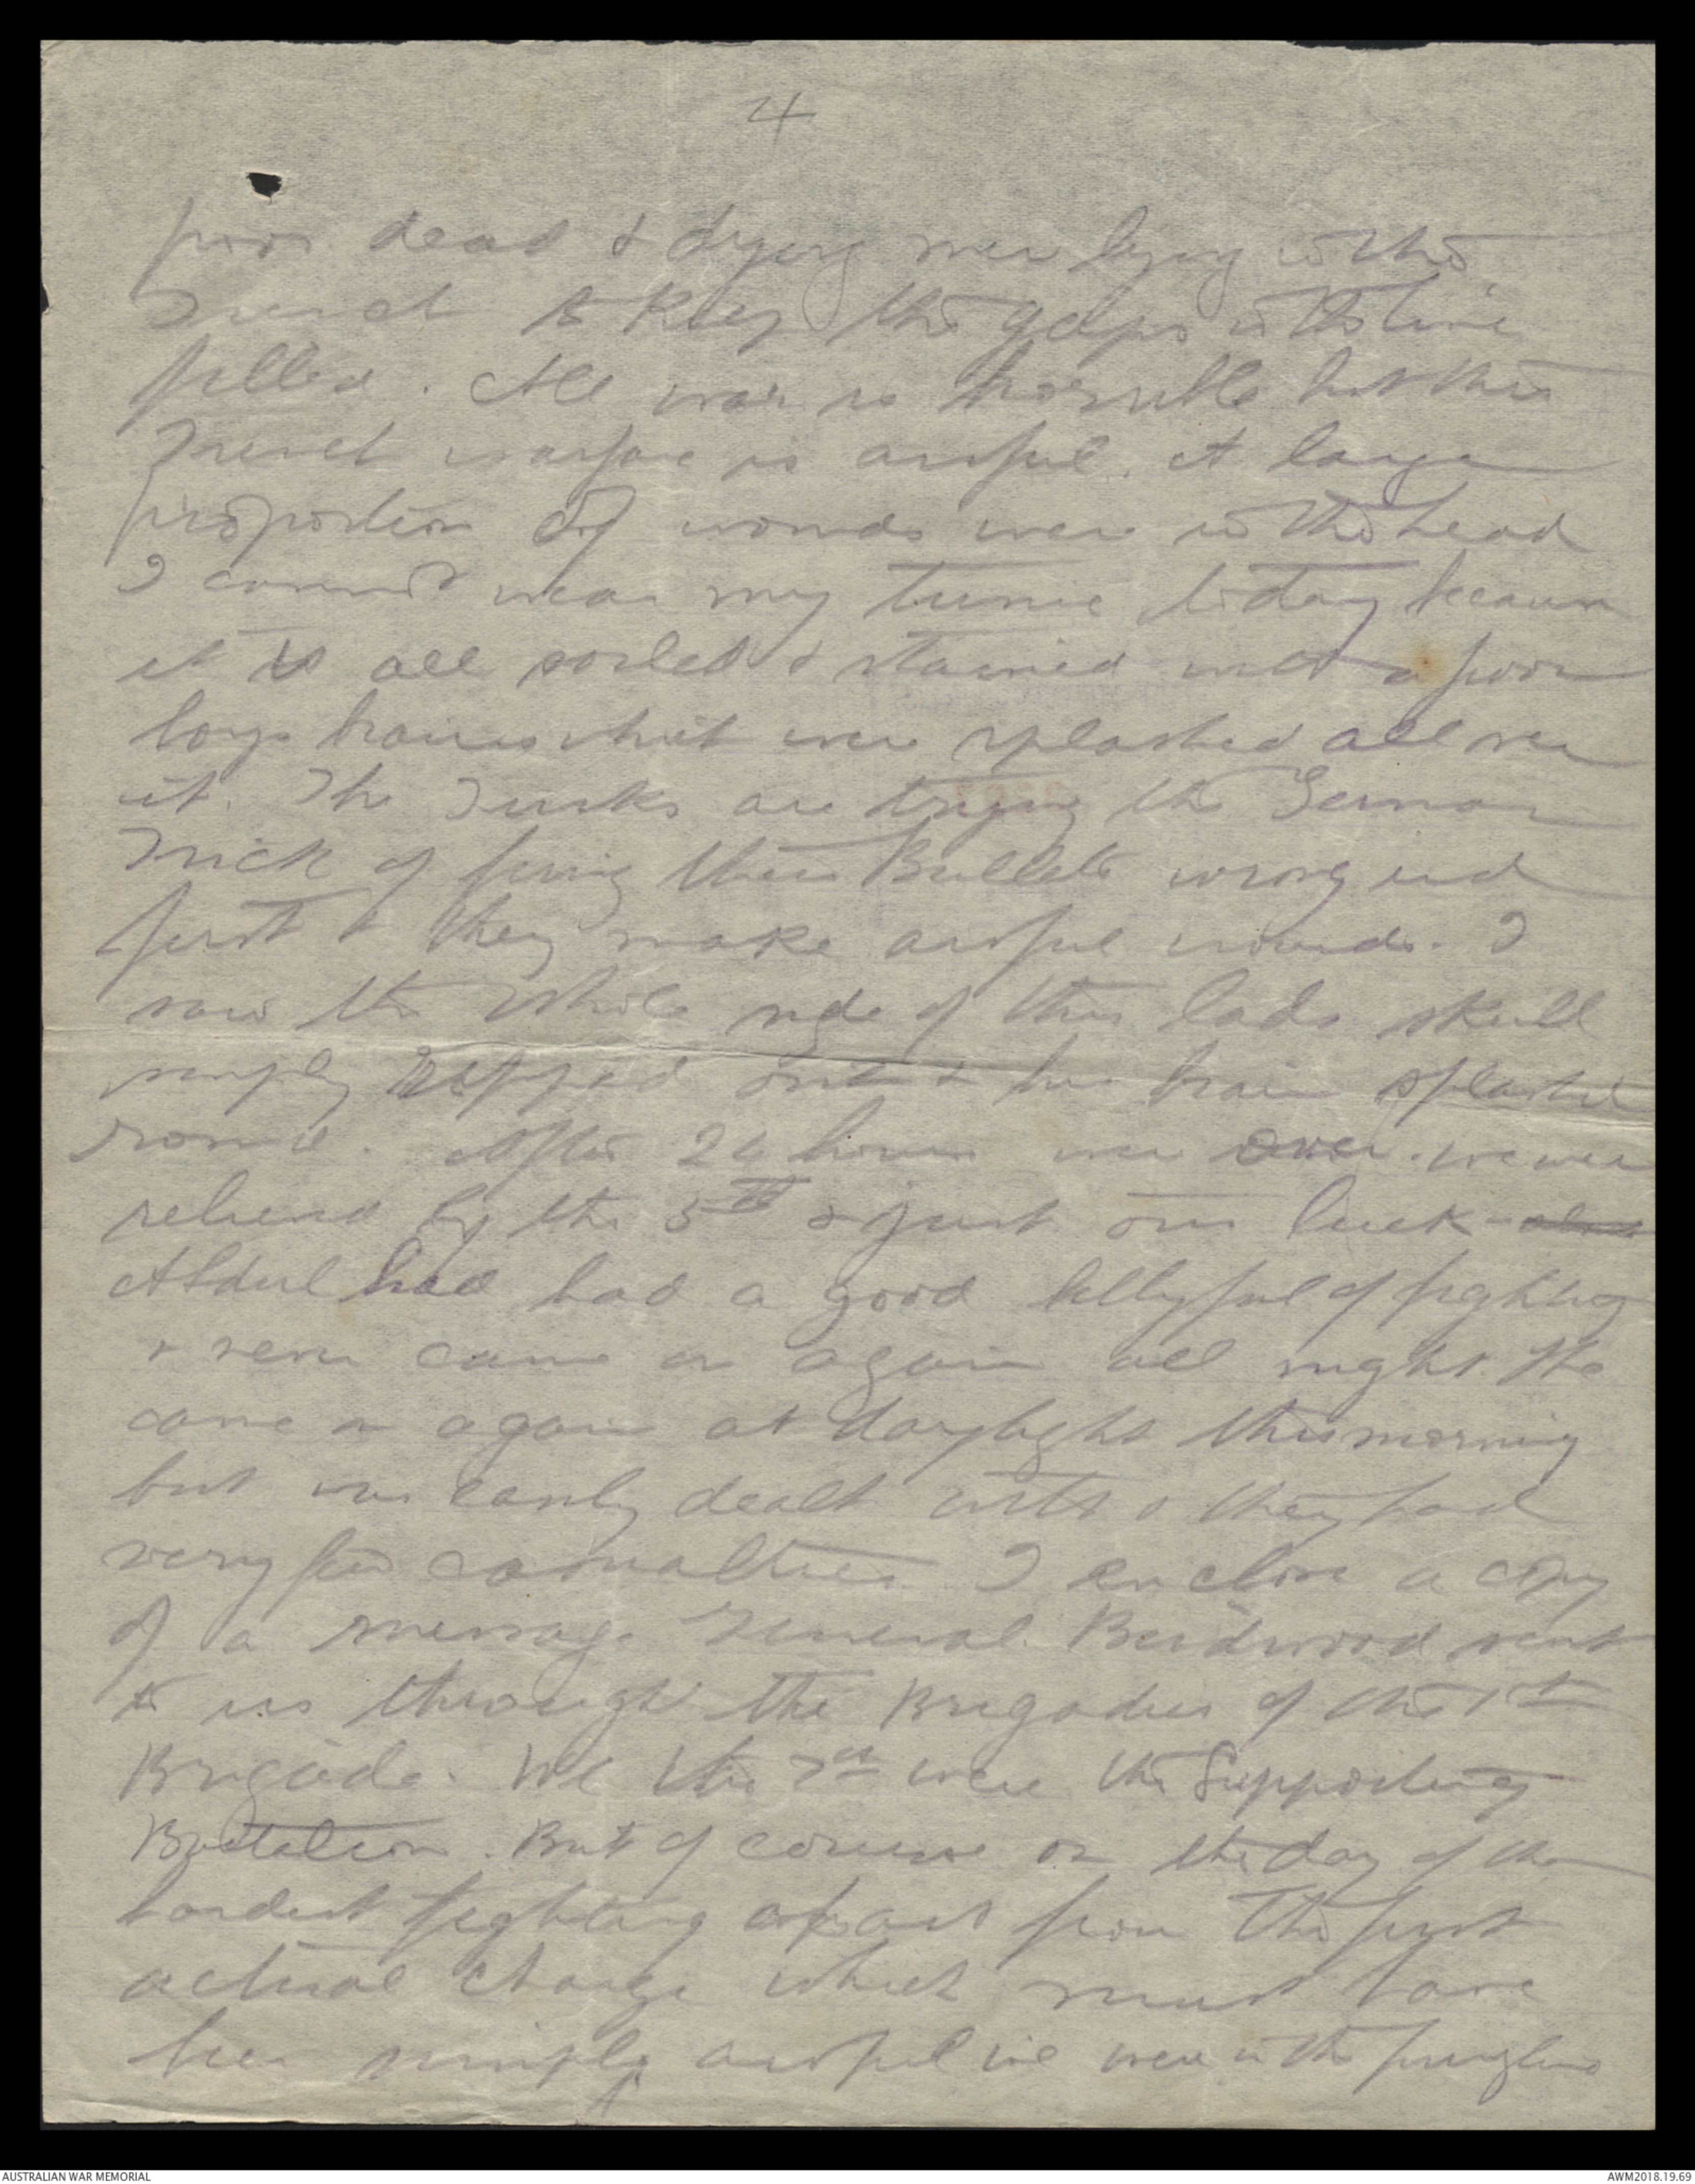 4
poor dead & dying men lying in the
trench to keep the gaps in the line
filled. All war is horrible but this
trench warfare is awful. A large
proportion of wounds were in the head
I cannot wear my tunic today because
it is all soiled & stained with a poor
boys brains which were splashed all over
it. The Turks are trying the German
trick of firing their Bullets wrong end
first & they make awful wounds. I
saw the whole side of this lads skull
simply ripped out & his brain splashed
round. After 24 hours we were
relieved by the 5th & just our luck
Abdul had had a good bellyful of fighting
& never came on again all night. He
came on again at daylight this morning
but was easily dealt with & they had
very few casualties. I enclose a copy
of a message General Birdwood sent
to us through the Brigadier of the 1st
Brigade. We the 7th were the Supporting
Battalion. But of course on the day of the
hardest fighting apart from the first
actual charge which must have
been simply awful we were in the firing line
AUSTRALIAN WAR MEMORIAL
AWM2018.19.69